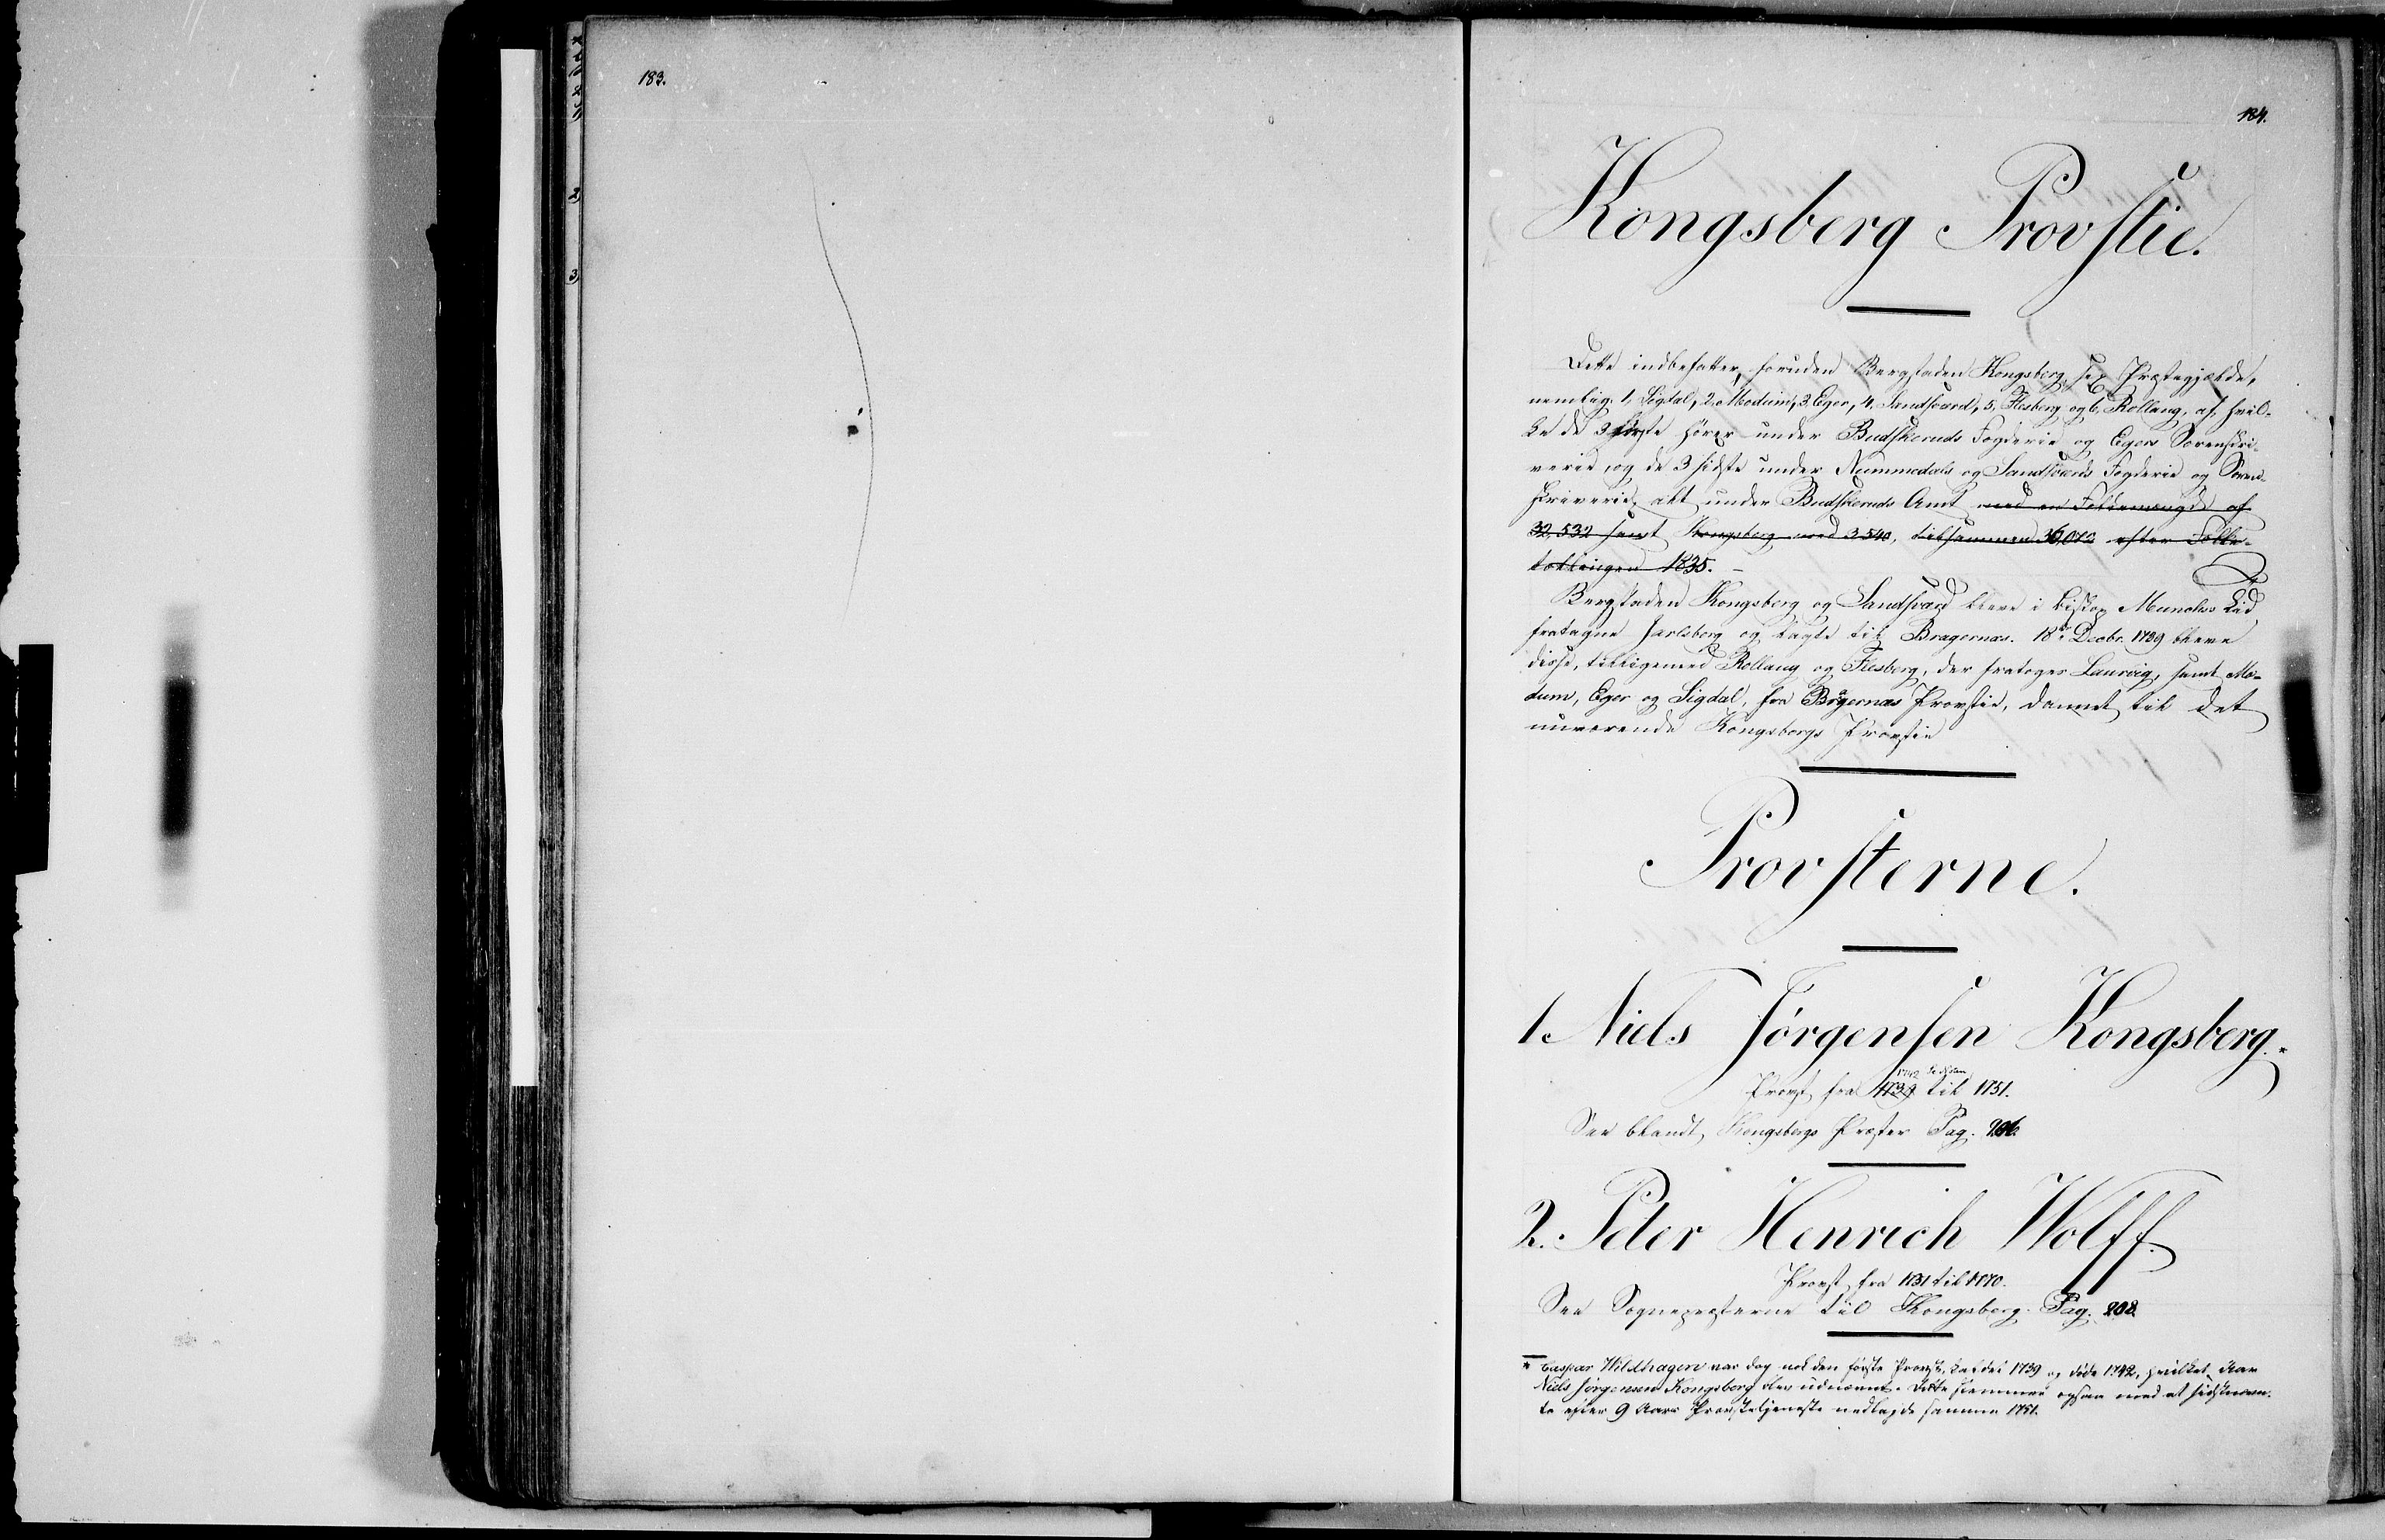 183.
184.
Kongsberg Provstie.
Dette indbefatter, foruden Bergstaden Kongsberg, sex Præstegjælde,
nemlig: 1, Sigdal, 2. Modum, 3. Eger, 4. Sandsværd, 5, Flesberg og 6, Rollaug, af hvil-
ke de 3 første hører under Budskeruds Fogderie og Egers Sorenskri-
verie, og de 3 sidste under Nummedals og Sandsværds Fogderie og Soren-
skriverie, alt under Budskeruds Amt med en Folkemængde af
32,532 samt Kongsberg med 3540, tilsammen 36,072 efter Folke-
tællingen 1835. –
Bergstaden Kongsberg og Sandsværd bleve i Biskop Munchs Tid
fratagne Jarlsberg og lagte til Bragernæs. 18de Decbr. 1739 bleve
disse, tilligemed Rollaug og Flesberg, der fratoges Laurvig, samt Mo-
dum, Eger og Sigdal, fra Bragernæs Provstie, dannet til det
nuværende Kongsbergs Provstie
Provsterne.
1. Niels Jörgensen Kongsberg.*
1742
Provst fra 1739 til 1751.
See blandt Kongsbergs Præster Pag. 206.
2. Peter Henrich Wolff.
Provst fra 1751 til 1770.
See Sognepræsterne til Kongsberg Pag. 208.
* Caspar Wildhagen var dog nok den første Provst, kaldet 1739 og døde 1742, hvilket Aar
Niels Jörgensen Kongsberg blev udnævnt. Dette stemmer ogsaa med at sidstnævn-
te efter 9 Aars Provstetjeneste nedlagde samme 1751.